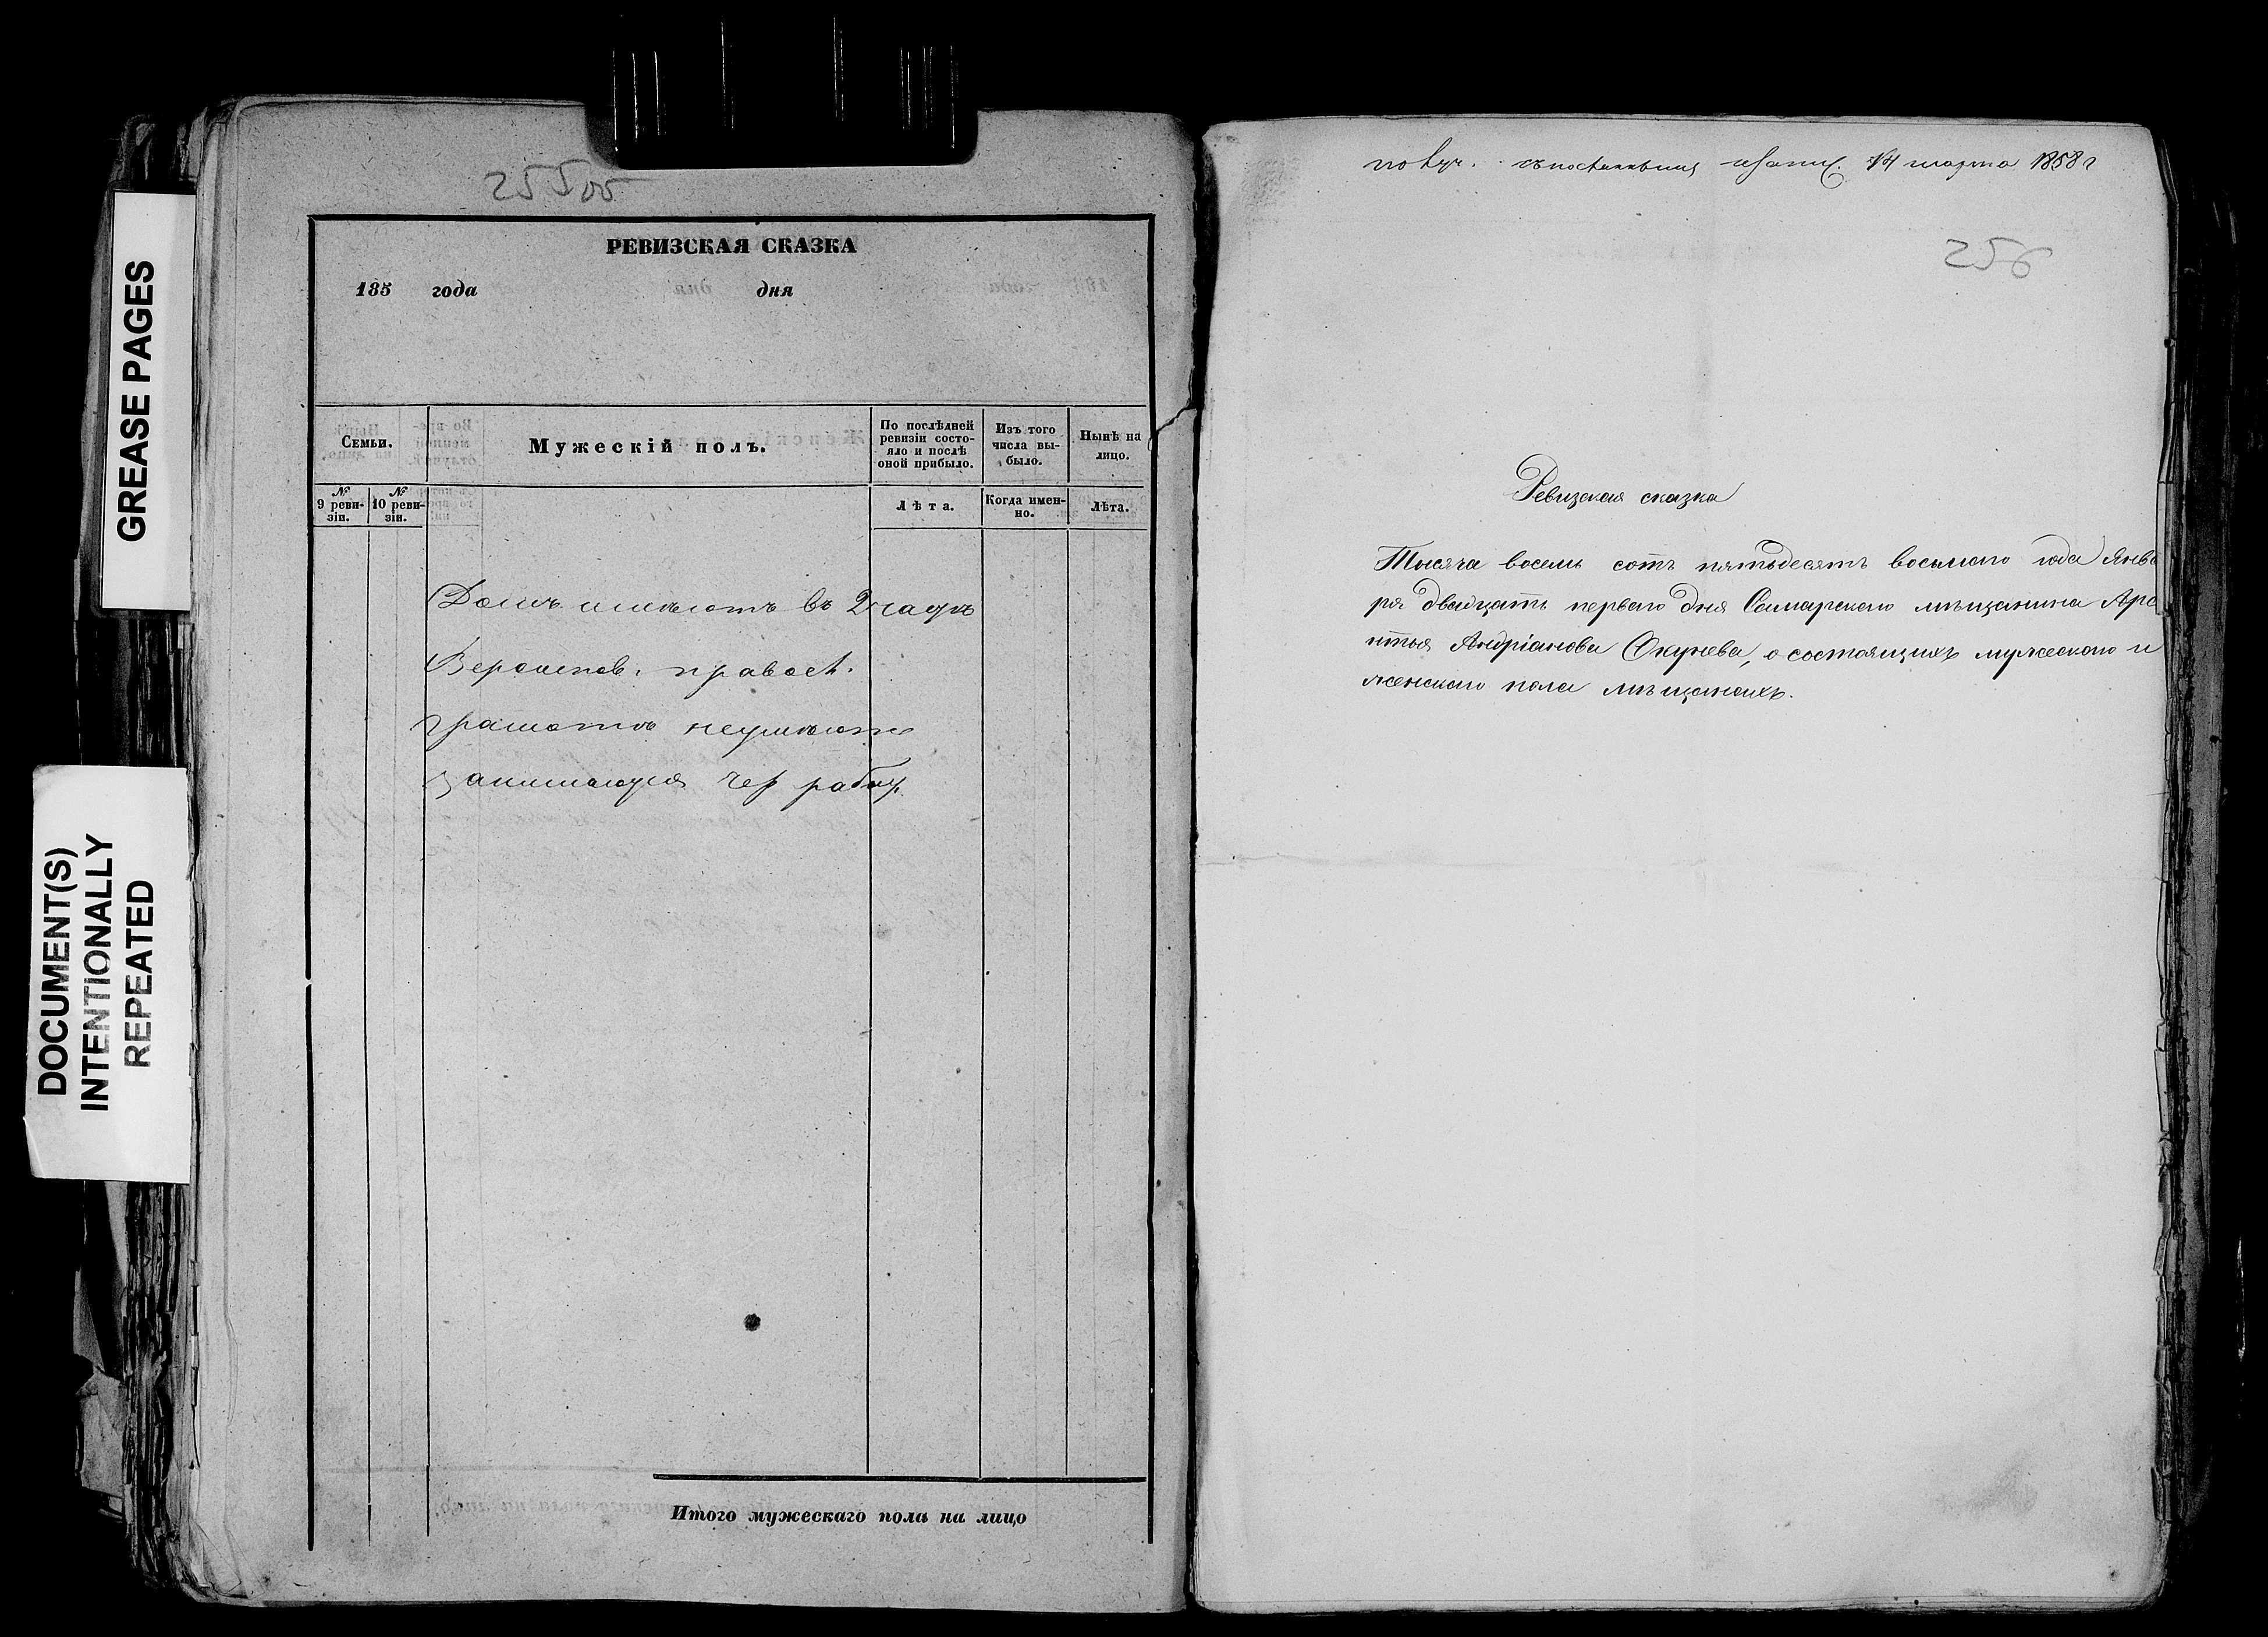 GREASE PAGES
DOCUMENT(S)
INTENTIONALLY
REPEATED
255об
РЕВИЗСКАЯ СКАЗКА
185 года дня
Семьи.
Мужескій полъ.
По послѣдней
ревизіи состо-
яло и послѣ
оной прибыло.
Изъ того
числа вы-
было.
Нынѣ на
лицо.
№
9 реви-
зіи.
№
10 реви-
зіи.
Лѣта.
Когда имен-
но.
Лѣта.
Домъ имѣютъ въ 2 част
Вероиспов. правосл.
грамотѣ неумѣютъ
занимающся чер работ.
Итого мужескаго пола на лицо
14 марта 1858 г
256
Ревизская сказка
Тысяча восемь сотъ пятьдесятъ восьмого года Янва
ря двадцать первого дня Самарского мѣщанина Арс
нтья Андріанова Окунева, о состоящихъ мужеского и
женского пола мѣщанахъ.